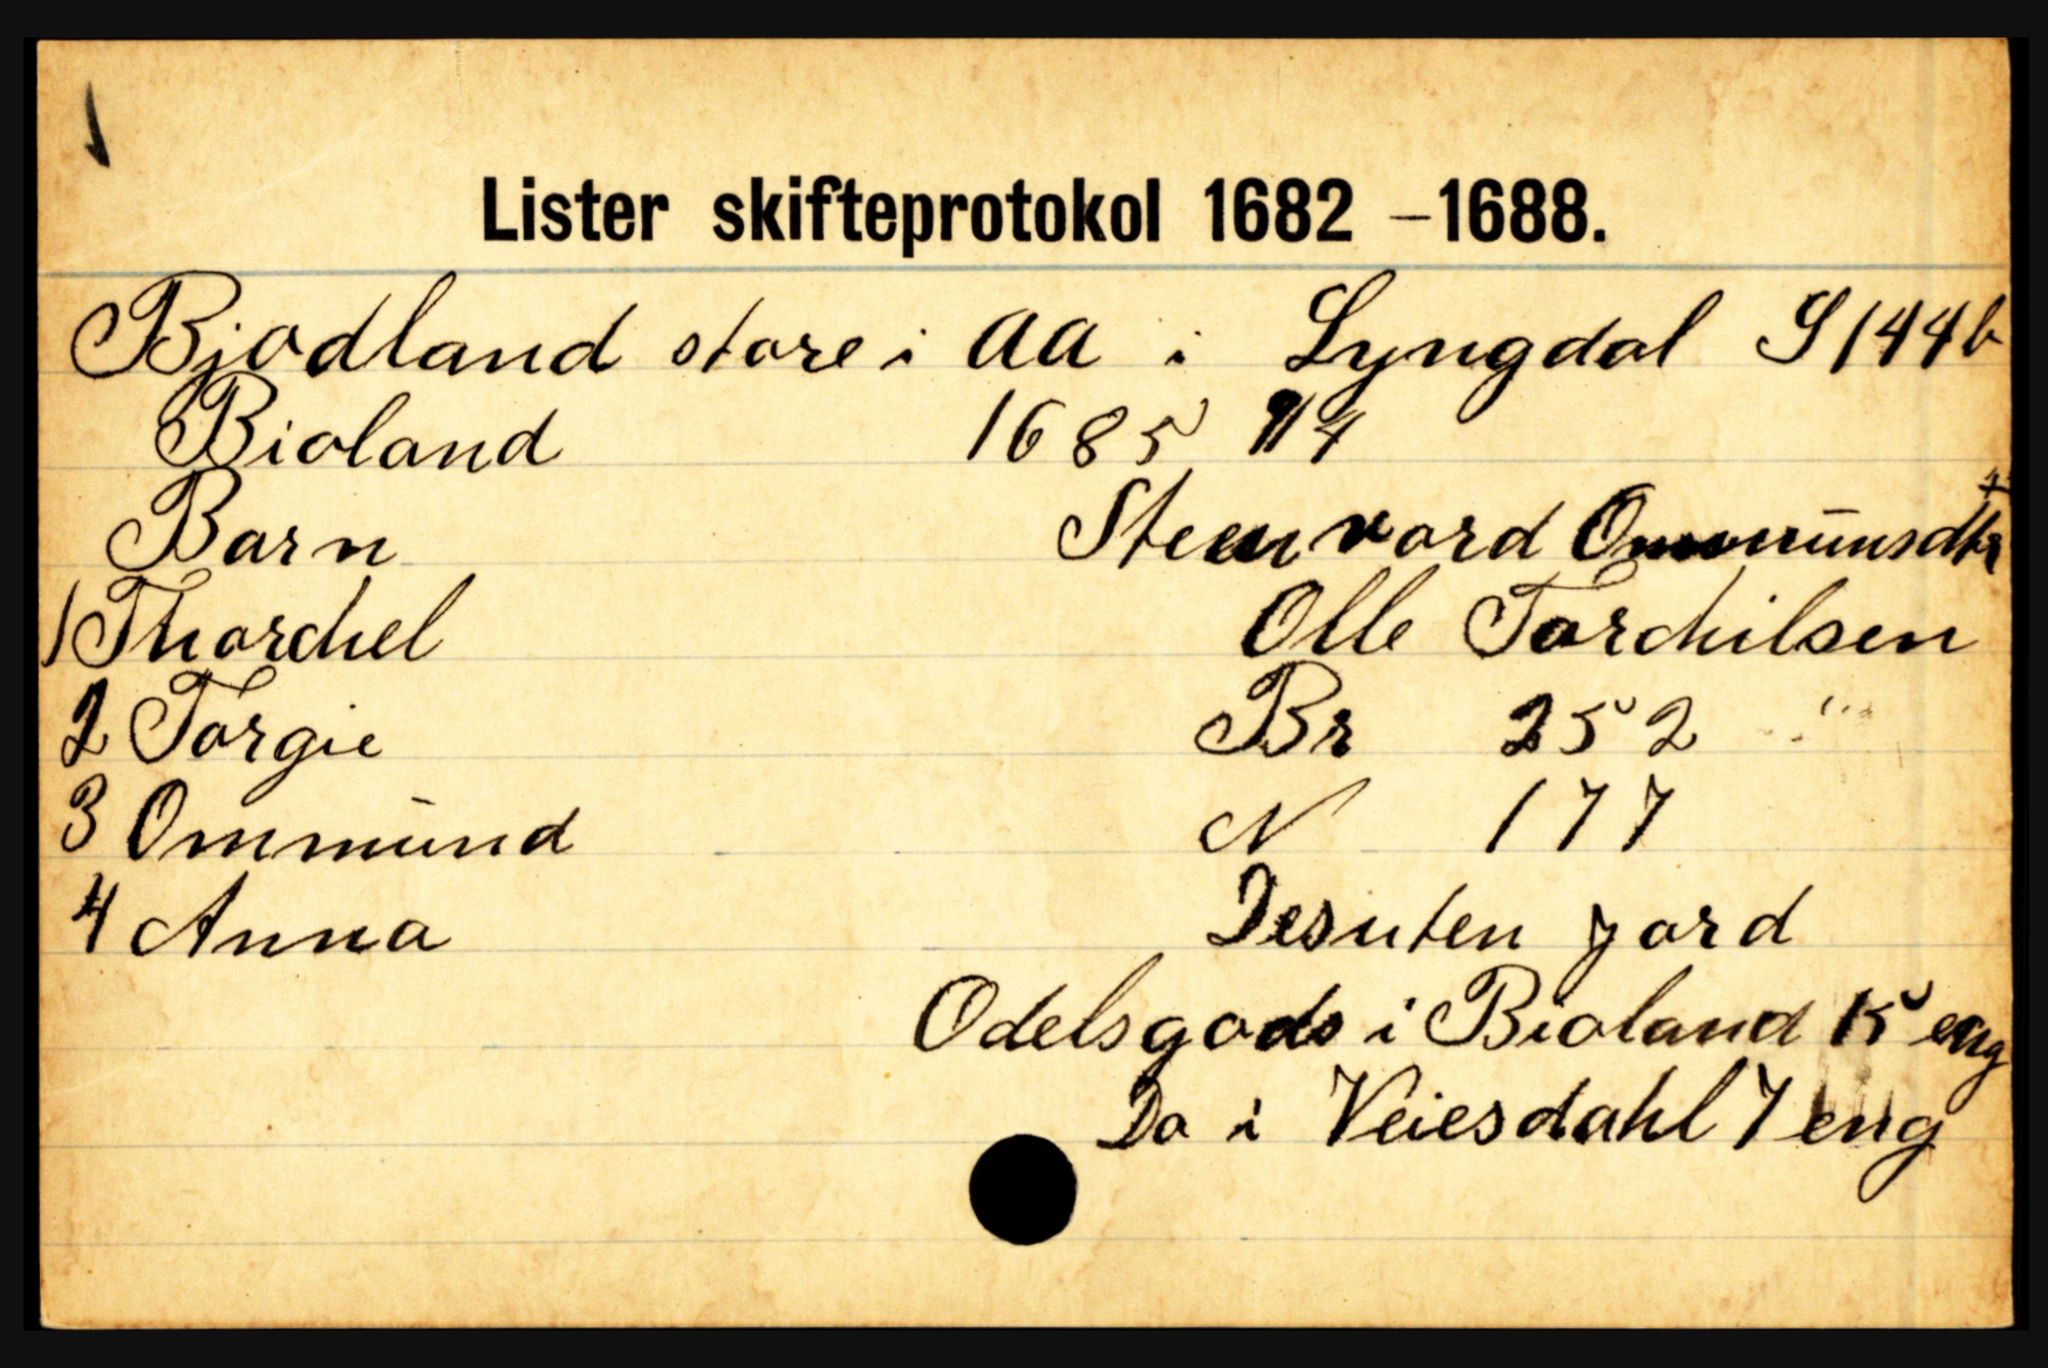 Lister skifteprotokol 1682 – 1688.
Bjodland store i Aa i Lyngdal S 144b
Bioland 1685 9/4
Barn Steenvord Ommŭnsdtr +
1 Thorchel Olle Torchilsen
2 Torgie Br 252
3 Ommūnd N 177
4 Anna Desuten jord
Odelsgods i Bioland 15 eng
Do i Veiesdahl 7 eng